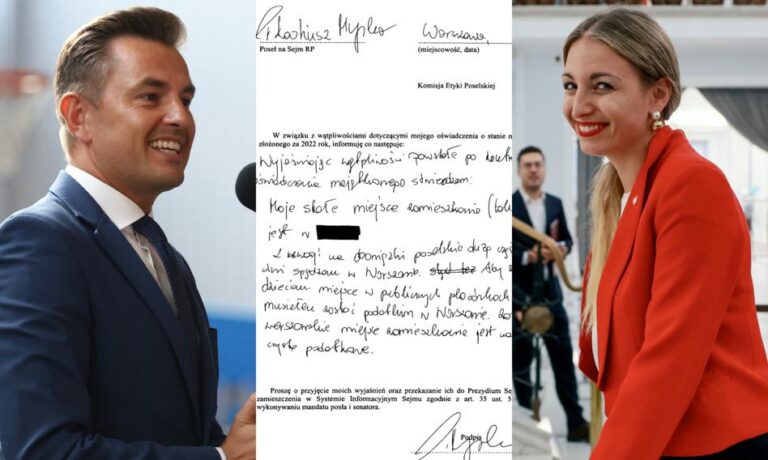 Arkadiusz Myrcha Warszawa,
Poseł na Sejm RP (miejscowość, data)
Komisja Etyki Poselskiej
W związku z wątpliwościami dotyczącymi mojego oświadczenia o stanie m
złożonego za 2022 rok, informuję co następuje:
Wyjaśniając wątpliwości powstałe po kontro
oświadczenia majątkowego stwierdzam:
Moje stałe miejsce zamieszkania
jest w
Z uwagi na obowiązki poselskie dużą częś
dni spędzam w Warszawie. Aby
dzieciom miejsce w publicznych placówkach
musiałem zostać podatkim w Warszawie.
warszawskie miejsce zamieszkania jest
czysto podatkowe.
Proszę o przyjęcie moich wyjaśnień oraz przekazanie ich do Prezydium Se
zamieszczenia w Systemie Informacyjnym Sejmu zgodnie z art. 35 ust. 5
wykonywaniu mandatu posła i senatora.
Podpis